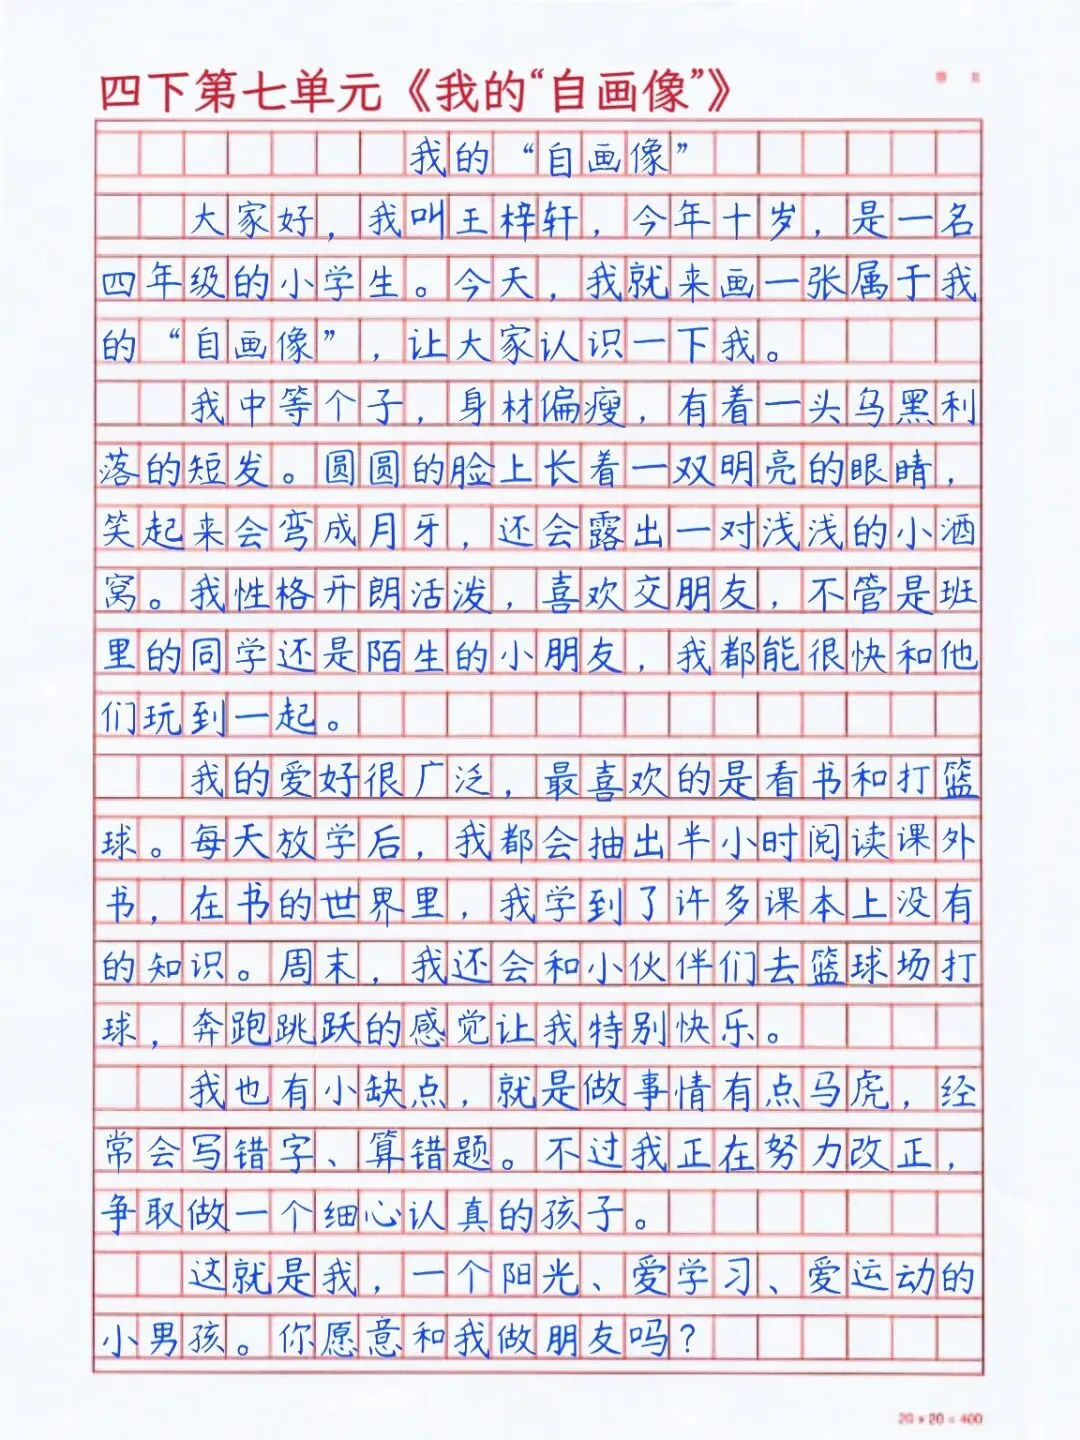 四下第七单元《我的“自画像”》
我的“自画像”
大家好，我叫王梓轩，今年十岁，是一名
四年级的小学生。今天，我就来画一张属于我
的“自画像”，让大家认识一下我。
我中等个子，身材偏瘦，有着一头乌黑利
落的短发。圆圆的脸上长着一双明亮的眼睛，
笑起来会弯成月牙，还会露出一对浅浅的小酒
窝。我性格开朗活泼，喜欢交朋友，不管是班
里的同学还是陌生的小朋友，我都能很快和他
们玩到一起。
我的爱好很广泛，最喜欢的是看书和打篮
球。每天放学后，我都会抽出半小时阅读课外
书，在书的世界里，我学到了许多课本上没有
的知识。周末，我还会和小伙伴们去篮球场打
球，奔跑跳跃的感觉让我特别快乐。
我也有小缺点，就是做事情有点马虎，经
常会写错字、算错题。不过我正在努力改正，
争取做一个细心认真的孩子。
这就是我，一个阳光、爱学习、爱运动的
小男孩。你愿意和我做朋友吗？
20×20=400